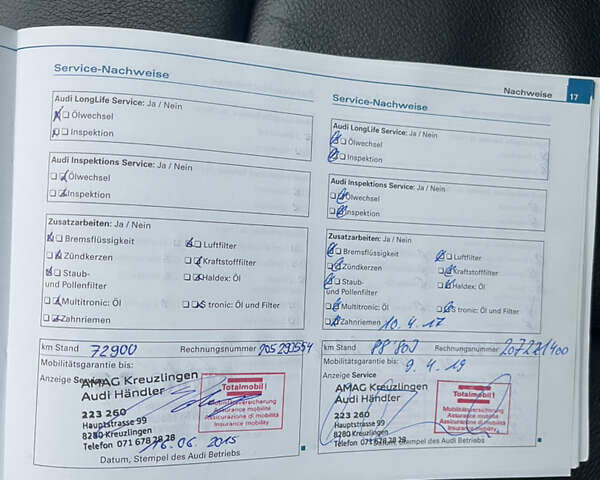 Nachweise 17
Service-Nachweise
Audi LongLife Service: Ja / Nein
Ölwechsel
Inspektion
Audi Inspektions Service: Ja / Nein
Ölwechsel
Inspektion
Zusatzarbeiten: Ja / Nein
Bremsflüssigkeit Luftfilter
Zündkerzen Kraftstofffilter
Staub- Haldex: Öl
und Pollenfilter
Multitronic: Öl S tronic: Öl und Filter
Zahnriemen
km Stand 72900 Rechnungsnummer
Mobilitätsgarantie bis:
Anzeige Service
AMAG Kreuzlingen
Audi Händler
223 260
Hauptstrasse 99
8280 Kreuzlingen
Telefon 071 678 28 28
Totalmobil!
Mobilitätsversicherung
Assurance mobilité
Assicurazione di mobilità
Insurance mobility
16.06.2015
Datum, Stempel des Audi Betriebs
Service-Nachweise
Audi LongLife Service: Ja / Nein
Ölwechsel
Inspektion
Audi Inspektions Service: Ja / Nein
Ölwechsel
Inspektion
Zusatzarbeiten: Ja / Nein
Bremsflüssigkeit Luftfilter
Zündkerzen Kraftstofffilter
Staub- Haldex: Öl
und Pollenfilter
Multitronic: Öl S tronic: Öl und Filter
Zahnriemen 10.4.17
km Stand Rechnungsnummer 207221400
Mobilitätsgarantie bis: 9.4.19
Anzeige Service
AMAG Kreuzlingen
Audi Händler
223 260
Hauptstrasse 99
8280 Kreuzlingen
Telefon 071 678 28 28
Totalmobil!
Mobilitätsversicherung
Assurance mobilité
Assicurazione di mobilità
Insurance mobility
Datum, Stempel des Audi Betriebs